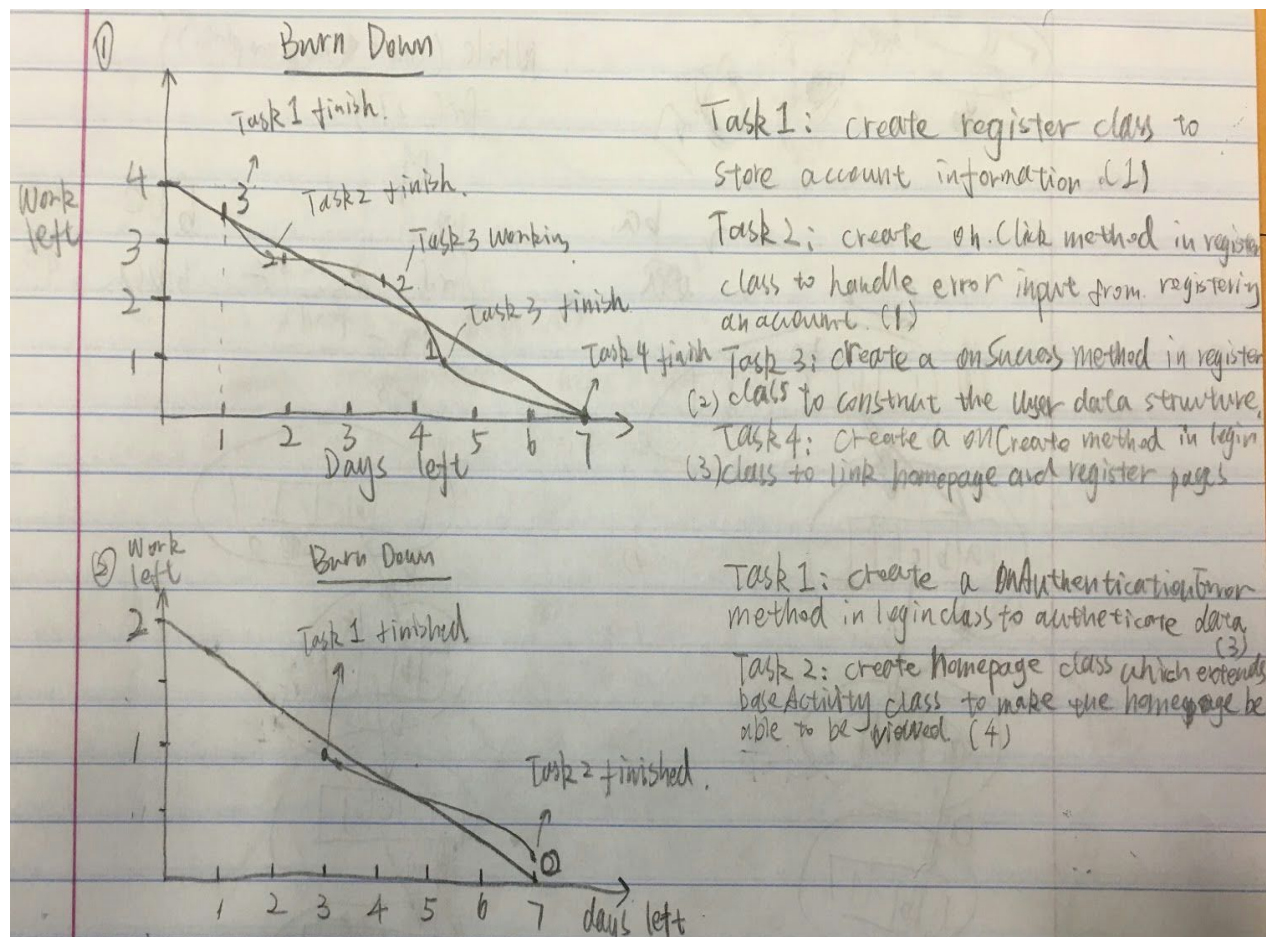 ① Burn Down
Task 1 finish.
Task 2 finish.
Task 3 working
Task 3 finish.
Task 4 finish
Work
left
4
3
2
1
3
2
2
1
1 2 3 4 5 6 7
Days left
Task 1: create register class to
store account information. (1)
Task 2: create on.Click method in register
class to handle error input from registering
an account. (1)
Task 3: create a onSuccess method in register
(2) class to construct the User data structure.
Task 4: create a onCreate method in login
(3) class to link homepage and register pages
② Work
left
Burn Down
2
1
Task 1 finished
Task 2 finished.
0
1 2 3 4 5 6 7 days left
Task 1: create a onAuthenticationError
method in login class to autheticate data
(3)
Task 2: create homepage class which extends
baseActivity class to make the homepage be
able to be viewed. (4)